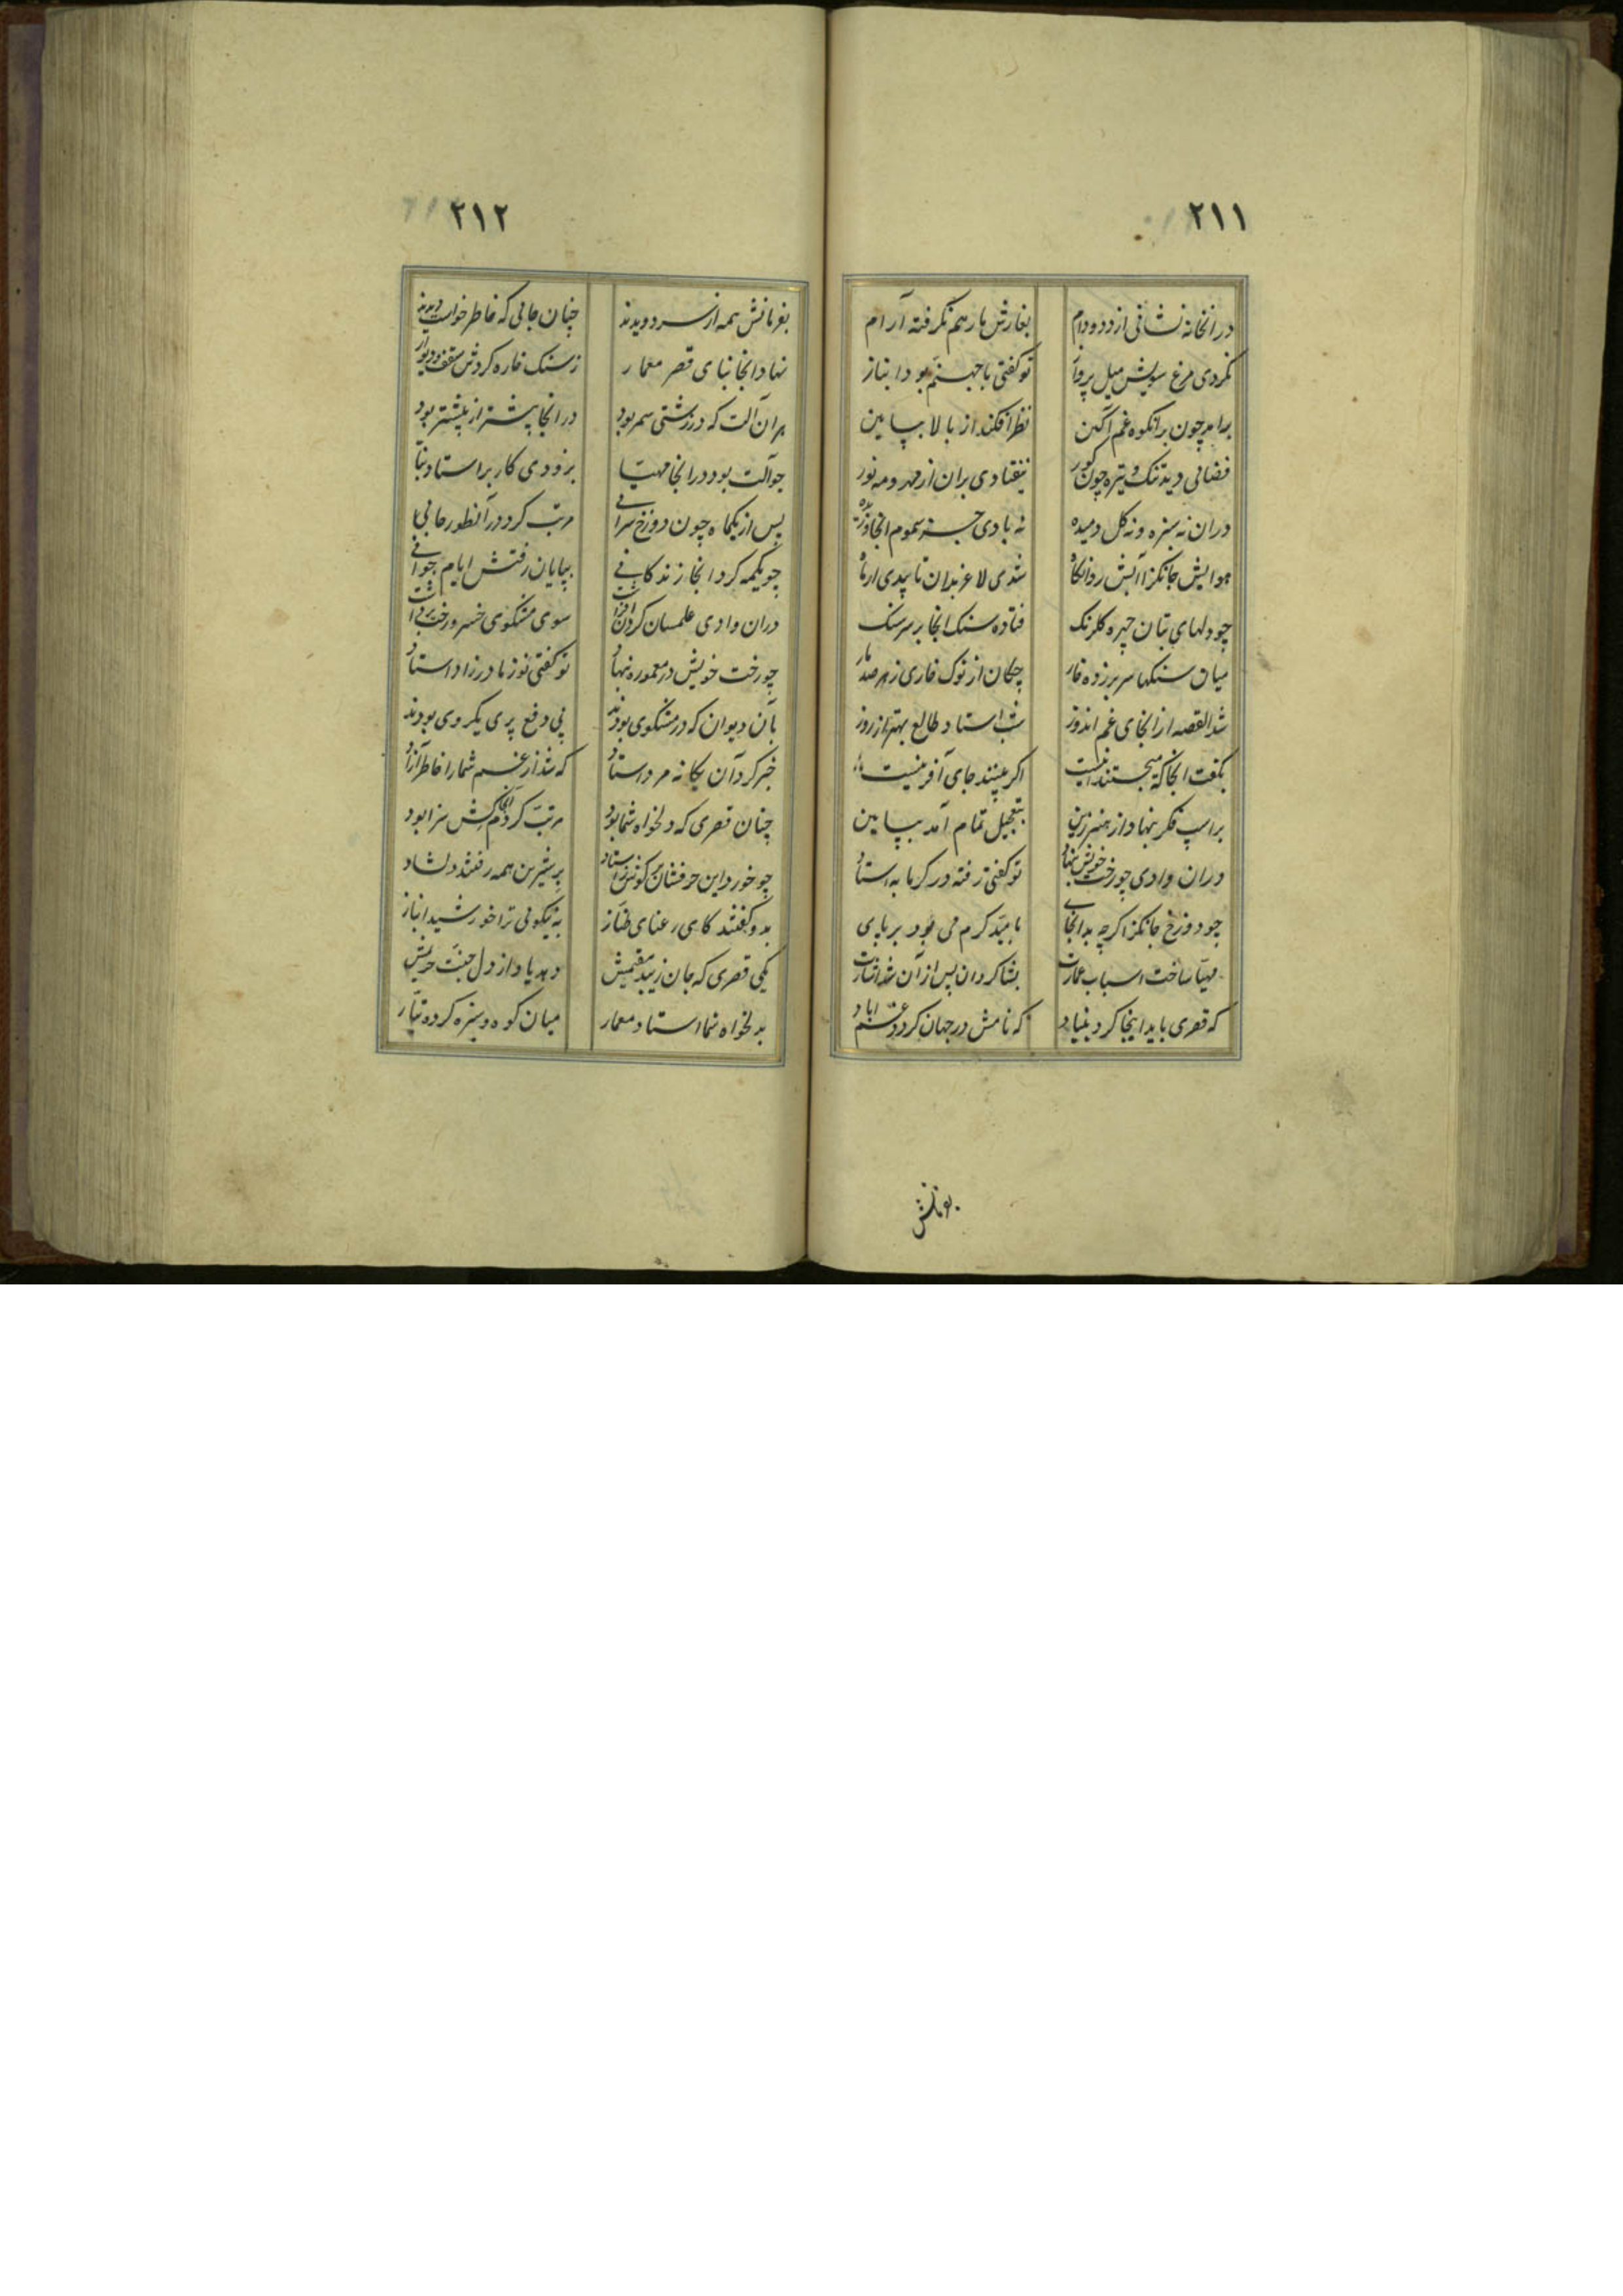 ۲۱۱
در انخانه نشانی از دد و دام بغارش مار هم نگرفته آرام
نکردی مرغ سویش میل پرواز تو کفتی با جهنم بود انباز
برامد چون برانکوه غم آکین نظر افکند از بالا بپایین
فضائی دید تنک و تیره چون کور نیفتادی بران از مهر و مه نور
دران نه سبزه و نه کل دمیده نه بادی جز سموم انجا وزیده
هوایش جانکزا آبش روانکاه شدی لاغر بدان تا
چو دلهای بتان چهره کلرنک فتاده سنک انجا بر سر سنک
میان سنکها سر بر زده خار چکان از نوک خاری زهر صد مار
شد القصه از انجای غم اندوز شب استاد طالع بهتر از روز
بکفت انجا که میجستند اینست اکر بینند جای آفرینست
براسپ فکر بنهاد از هنر زین بتعجیل تمام آمد بپایین
دران وادی چو رخت خویش بنهاد تو کفتی رفته در کرمابه استاد
چو دوزخ جانکزا اکرچه بد انجای بامید کرم می بود بر پای
مهیا ساخت اسباب عمارت بشاکردان پس از آن شد اشارت
که قصری باید اینجا کرد بنیاد که نامش در جهان کردد غم اباد
بفرمانش
۲۱۲
بفرمانش همه از سر دویدند چنان جائی که خاطر خواست دیدند
نهاد انجا بنای قصر معمار ز سنک خاره کردش سقف و دیوار
هر آن آلت که در زشتی سمر بود در انجا بیشتر از پیشتر بود
چو آلت بود در انجا مهیا بزودی کار بر استاد
پس از یکماه چون دوزخ سرائی مرتب کرد در آنطور جائی
چو یکمه کرد انجا زندکانی بپایان رفتش ایام جوانی
دران وادی علمسان کردن افراشت سوی مشکوی خسرو رخت برداشت
چو رخت خویش در معموره بنهاد تو کفتی نوز مادر زاد استاد
بآن دیوان که در مشکوی بودند پی دفع پری یکروی بودند
خبر کرد آن یکانه مرد استاد که شد از غم شما را خاطر آزاد
چنان قصری که دلخواه شما بود مرتب کردم انجا کش سزا بود
چو خورد این حرفشان بر کوش ز استاد بر شیرین همه رفتند دلشاد
بدو کفتند کای رعنای طناز به نیکوئی ترا خورشید انباز
یکی قصری که جان زیبد مقیمش دهد یاد از دل جنت حریمش
بدلخواه شما استاد معمار میان کوه و سبزه کرده تیار